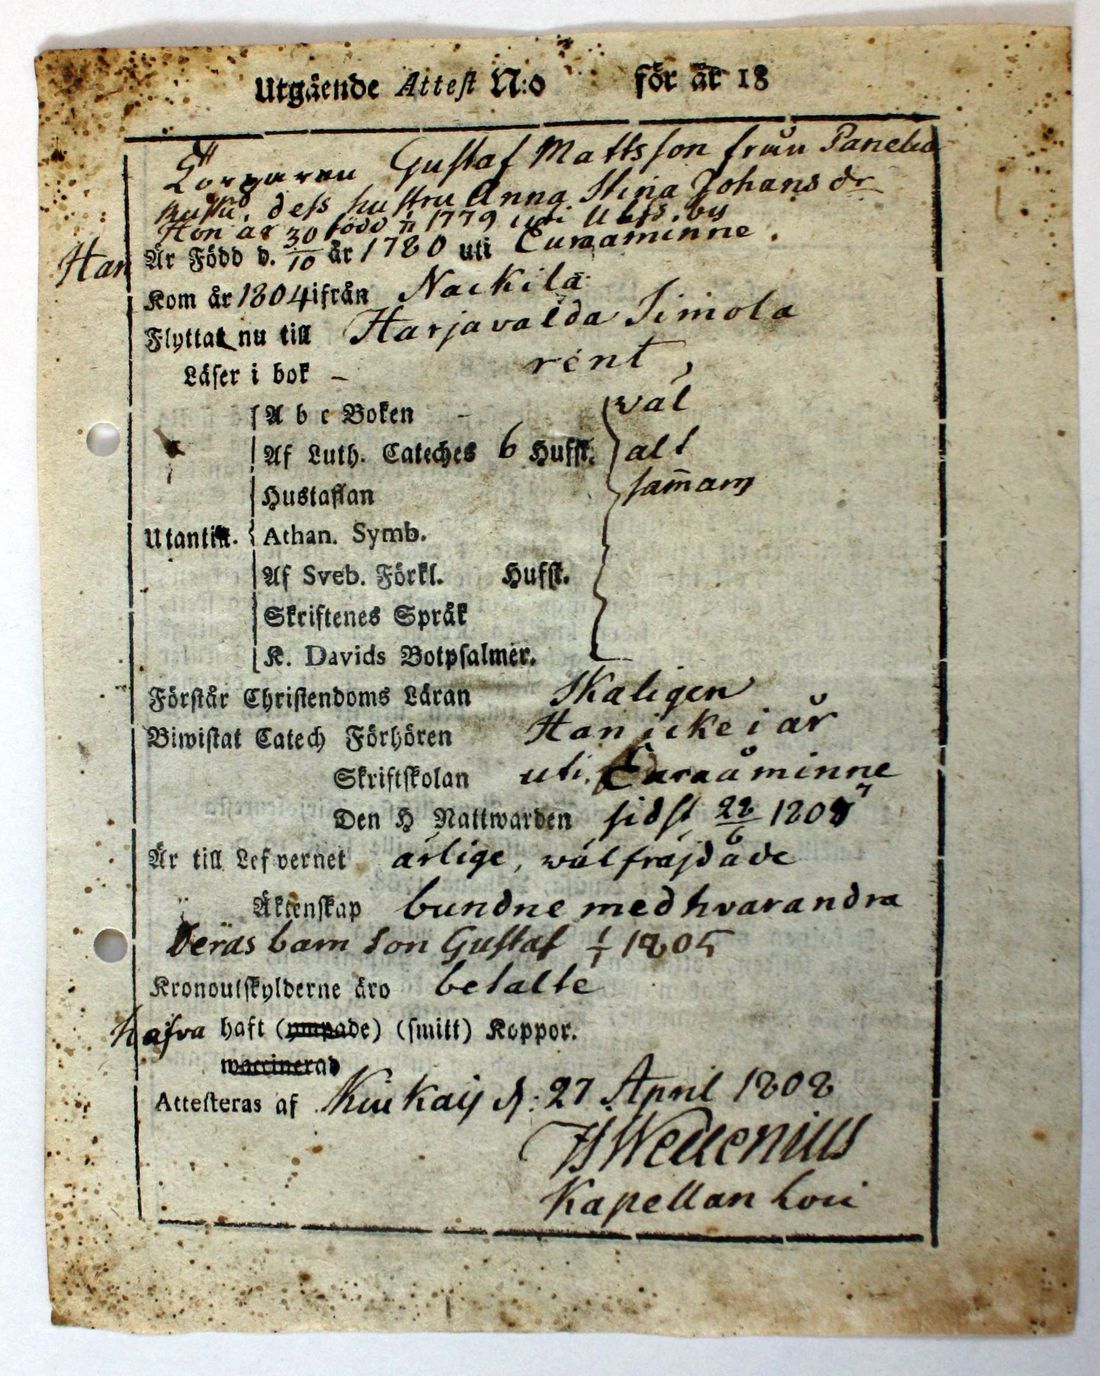 Utgående Attest N:o för år 18
Torparen Gustaf Mattsson från Panelia
dess hustru Anna Stina Johans dr
Hon är född 1779 uti by
Han Är Född d. 30/10 år 1780 uti Euraåminne.
Kom år 1804 ifrån Nackila
Flyttat nu till Harjavalda Simola
Läser i bok – rent,
A b c Boken - väl
Af Luth. Cateches 6 Hufst. alt
Hustaflan samam
Utantill. Athan. Symb.
Af Sveb. Förkl. Hufst.
Skriftenes Språk
K. Davids Botpsalmer.
Förstår Christendoms Läran Skäligen
Biwistat Catech Förhören Han icke i år
Skriftskolan uti Euraåminne
Den H Nattwarden sidst 22/6 1807
Är till Lefvernet ärlige, wälfräjdade
Äktenskap bundne med hvarandra
Deras barn Son Gustaf 1/1 1805
Kronoutskylderne äro betalte
hafva haft (ympade) (smitt) Koppor.
waccinerad
Attesteras af Kiukais d: 27 April 1808
Wedenius
Kapellan loci